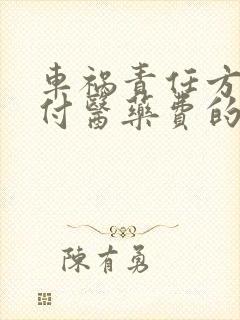 車禍責任方
付醫藥費的
陳有勇